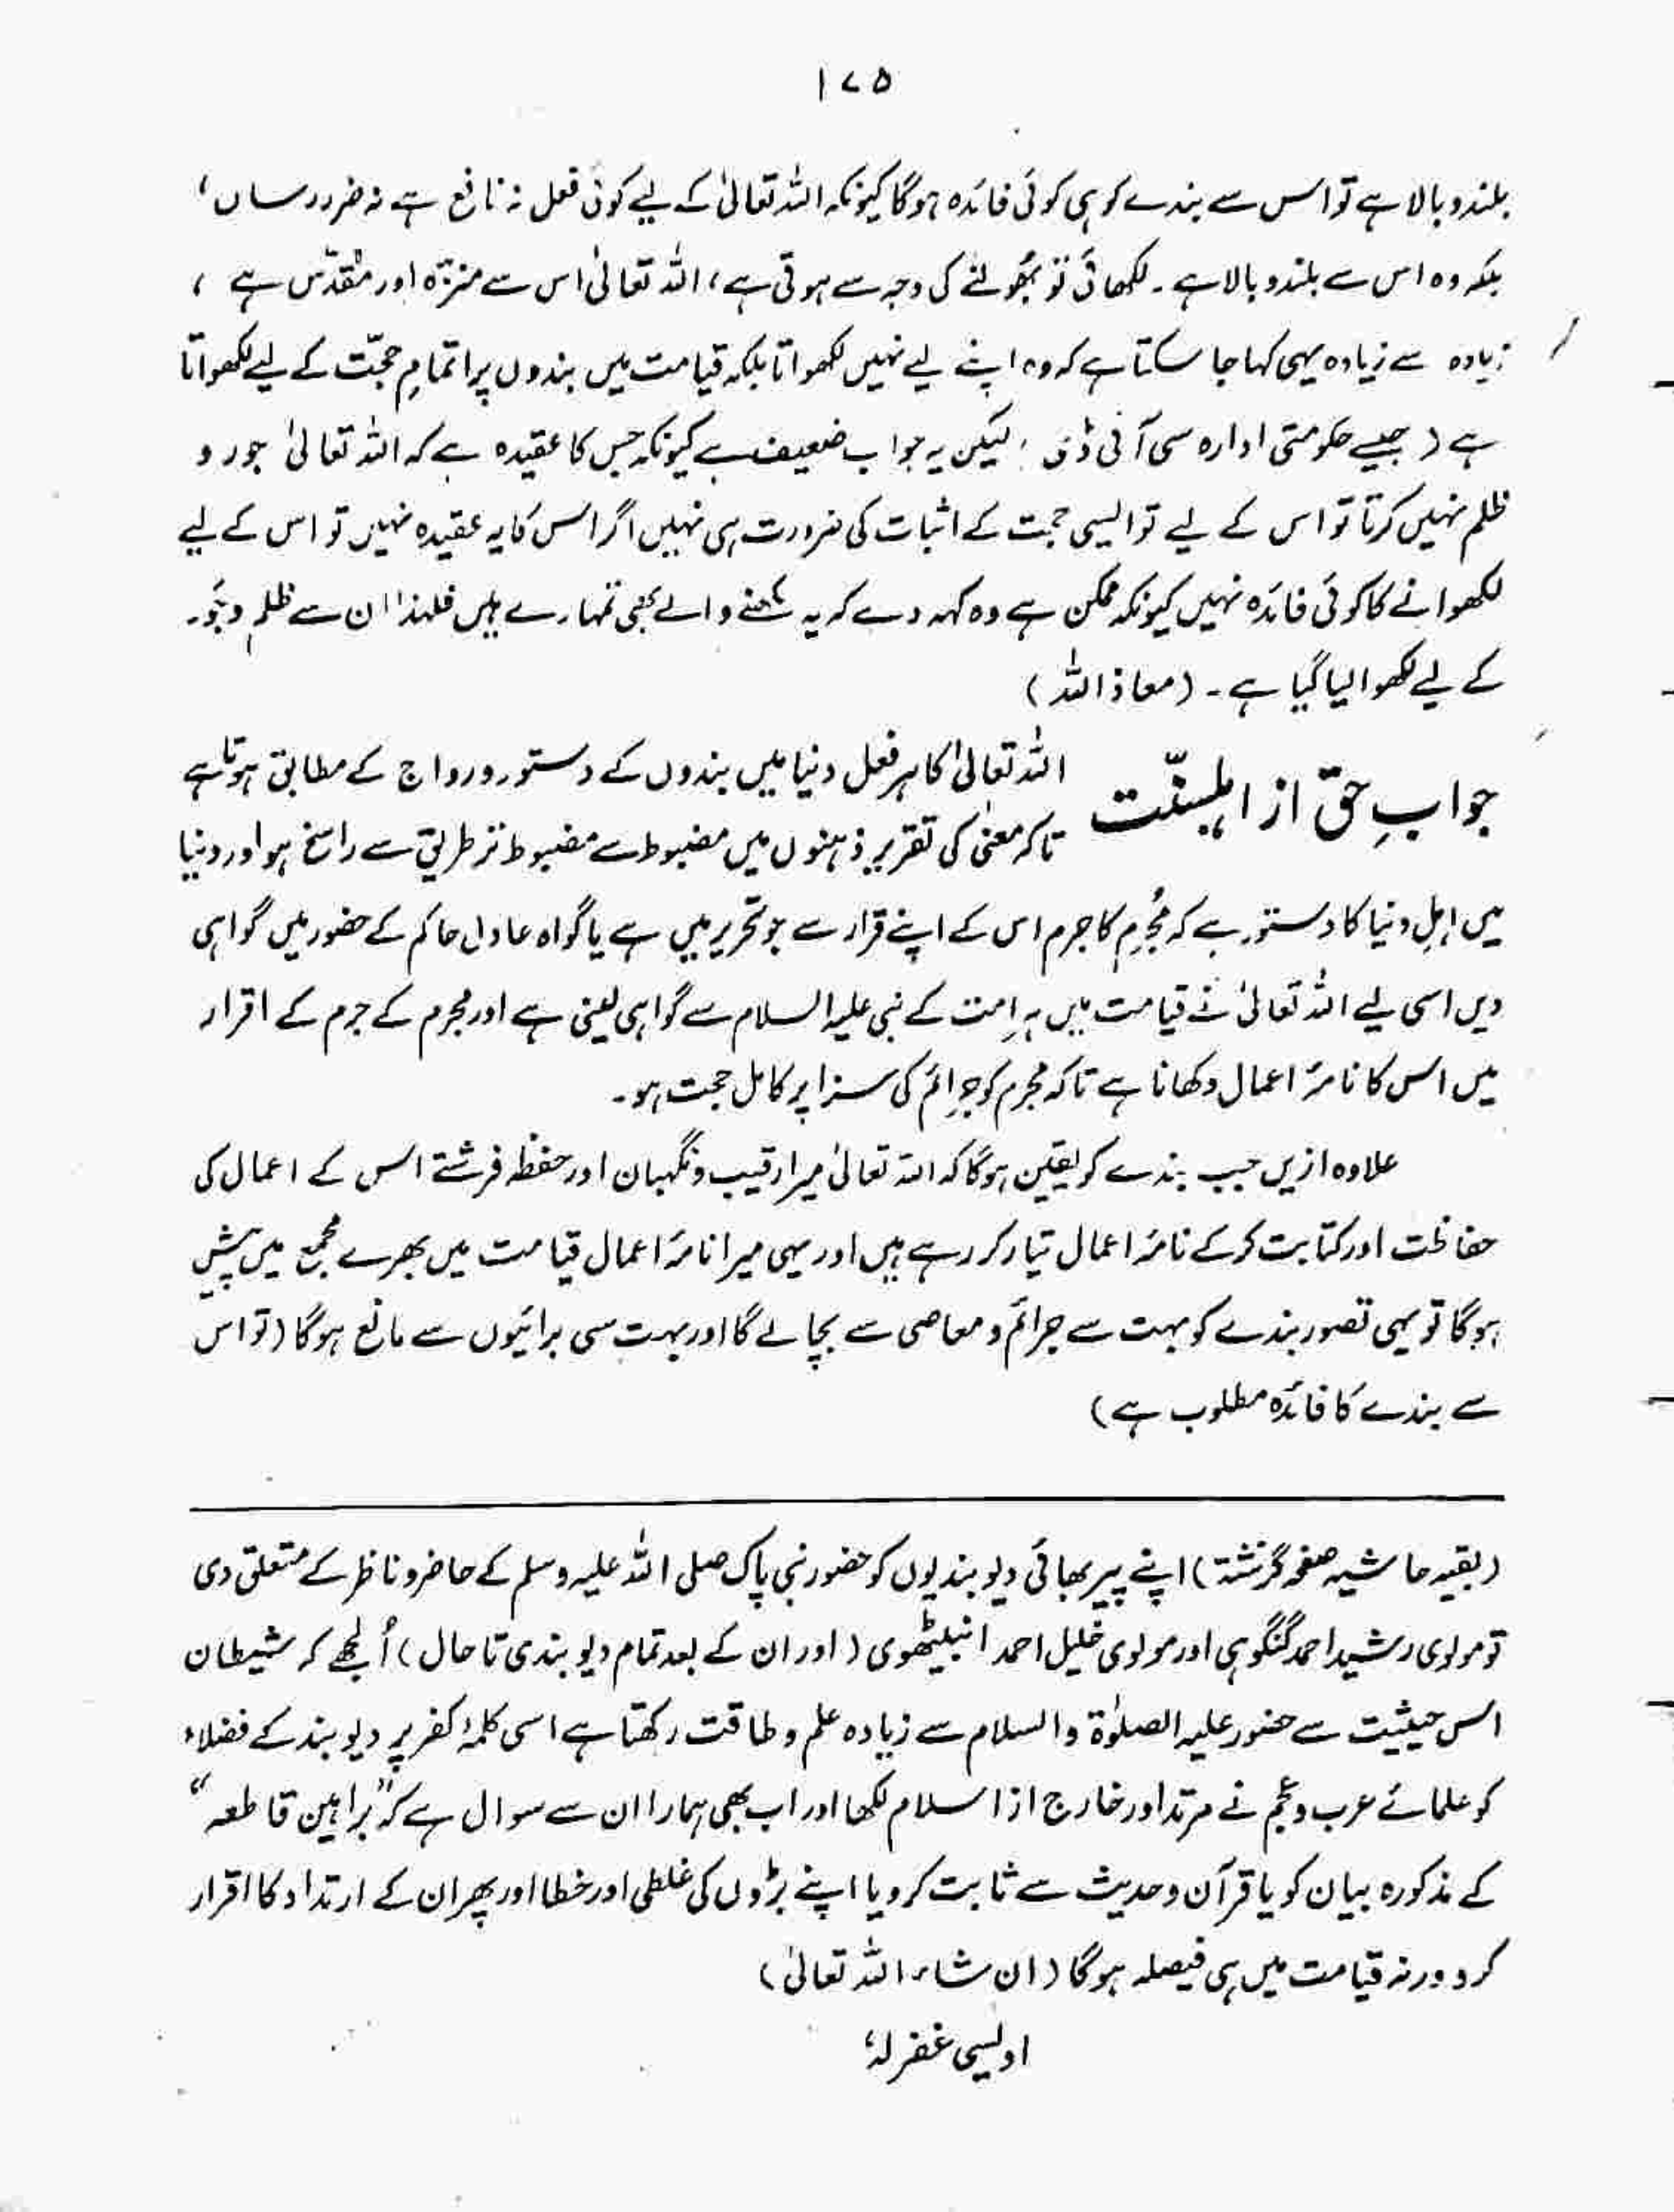 ۱۷۵
بلند و بالا ہے تو اس سے بندے کو ہی کوئی فائدہ ہوگا کیونکہ اللہ تعالیٰ کے لیے کوئی فعل نہ نافع ہے نہ ضرر رساں،
بلکہ وہ اس سے بلند و بالا ہے۔ لکھائی تو بھُولنے کی وجہ سے ہوتی ہے، اللہ تعالیٰ اس سے منزّہ اور مقدّس ہے ،
زیادہ سے زیادہ یہی کہا جا سکتا ہے کہ وہ اپنے لیے نہیں لکھواتا بلکہ قیامت میں بندوں پر اتمامِ حجّت کے لیے لکھواتا
ہے (جیسے حکومتی ادارہ سی آئی ڈی ۔ لیکن یہ جواب ضعیف ہے کیونکہ جس کا عقیدہ ہے کہ اللہ تعالیٰ جور و
ظلم نہیں کرتا تو اس کے لیے تو ایسی حجت کے اثبات کی ضرورت ہی نہیں اگر اس کا یہ عقیدہ نہیں تو اس کے لیے
لکھوانے کا کوئی فائدہ نہیں کیونکہ ممکن ہے وہ کہہ دے کہ یہ لکھنے والے بھی تمہارے ہیں فلہذا ان سے ظلم و جَور۔
کے لیے لکھوا لیا گیا ہے۔ (معاذ اللہ)
جوابِ حقّ از اہلِسنّت اللہ تعالیٰ کا ہر فعل دنیا میں بندوں کے دستور و رواج کے مطابق ہوتا ہے
تاکہ معنیٰ کی تقریر ذہنوں میں مضبوط سے مضبوط تر طریق سے راسخ ہو اور دنیا
میں اہلِ دنیا کا دستور ہے کہ مُجرِم کا جرم اس کے اپنے قرار سے جو تحریر میں ہے یا گواہ عادل حاکم کے حضور میں گواہی
دیں اسی لیے اللہ تعالیٰ نے قیامت میں ہر امت کے نبی علیہ السلام سے گواہی لینی ہے اور مجرم کے جرم کے اقرار
میں اس کا نامۂ اعمال دکھانا ہے تاکہ مجرم کو جرائم کی سزا پر کامل حجت ہو۔
علاوہ ازیں جب بندے کو یقین ہوگا کہ اللہ تعالیٰ میرا رقیب و نگہبان اور حفظہ فرشتے اس کے اعمال کی
حفاظت اور کتابت کر کے نامۂ اعمال تیار کر رہے ہیں اور یہی میرا نامۂ اعمال قیامت میں بھرے مجمع میں پیش
ہوگا تو یہی تصور بندے کو بہت سے جرائم و معاصی سے بچا لے گا اور بہت سی برائیوں سے مانع ہوگا (تو اس
سے بندے کا فائدہ مطلوب ہے)
(بقیہ حاشیہ صفحہ گزشتہ) اپنے پیر بھائی دیوبندیوں کو حضور نبی پاک صلی اللہ علیہ وسلم کے حاضر و ناظر کے متعلق دی
تو مولوی رشید احمد گنگوہی اور مولوی خلیل احمد انبیٹھوی (اور ان کے بعد تمام دیوبندی تاحال) اُلجھے کہ شیطان
اس حیثیت سے حضور علیہ الصلوٰۃ والسلام سے زیادہ علم و طاقت رکھتا ہے اسی کلمۂ کفر پر دیوبند کے فضلاء
کو علمائے عرب و عجم نے مرتد اور خارج از اسلام لکھا اور اب بھی ہمارا ان سے سوال ہے کہ "براہین قاطعہ"
کے مذکورہ بیان کو یا قرآن و حدیث سے ثابت کرو یا اپنے بڑوں کی غلطی اور خطا اور پھر ان کے ارتداد کا اقرار
کرو ورنہ قیامت میں ہی فیصلہ ہوگا (ان شاء اللہ تعالیٰ)
اویسی غفرلہٗ